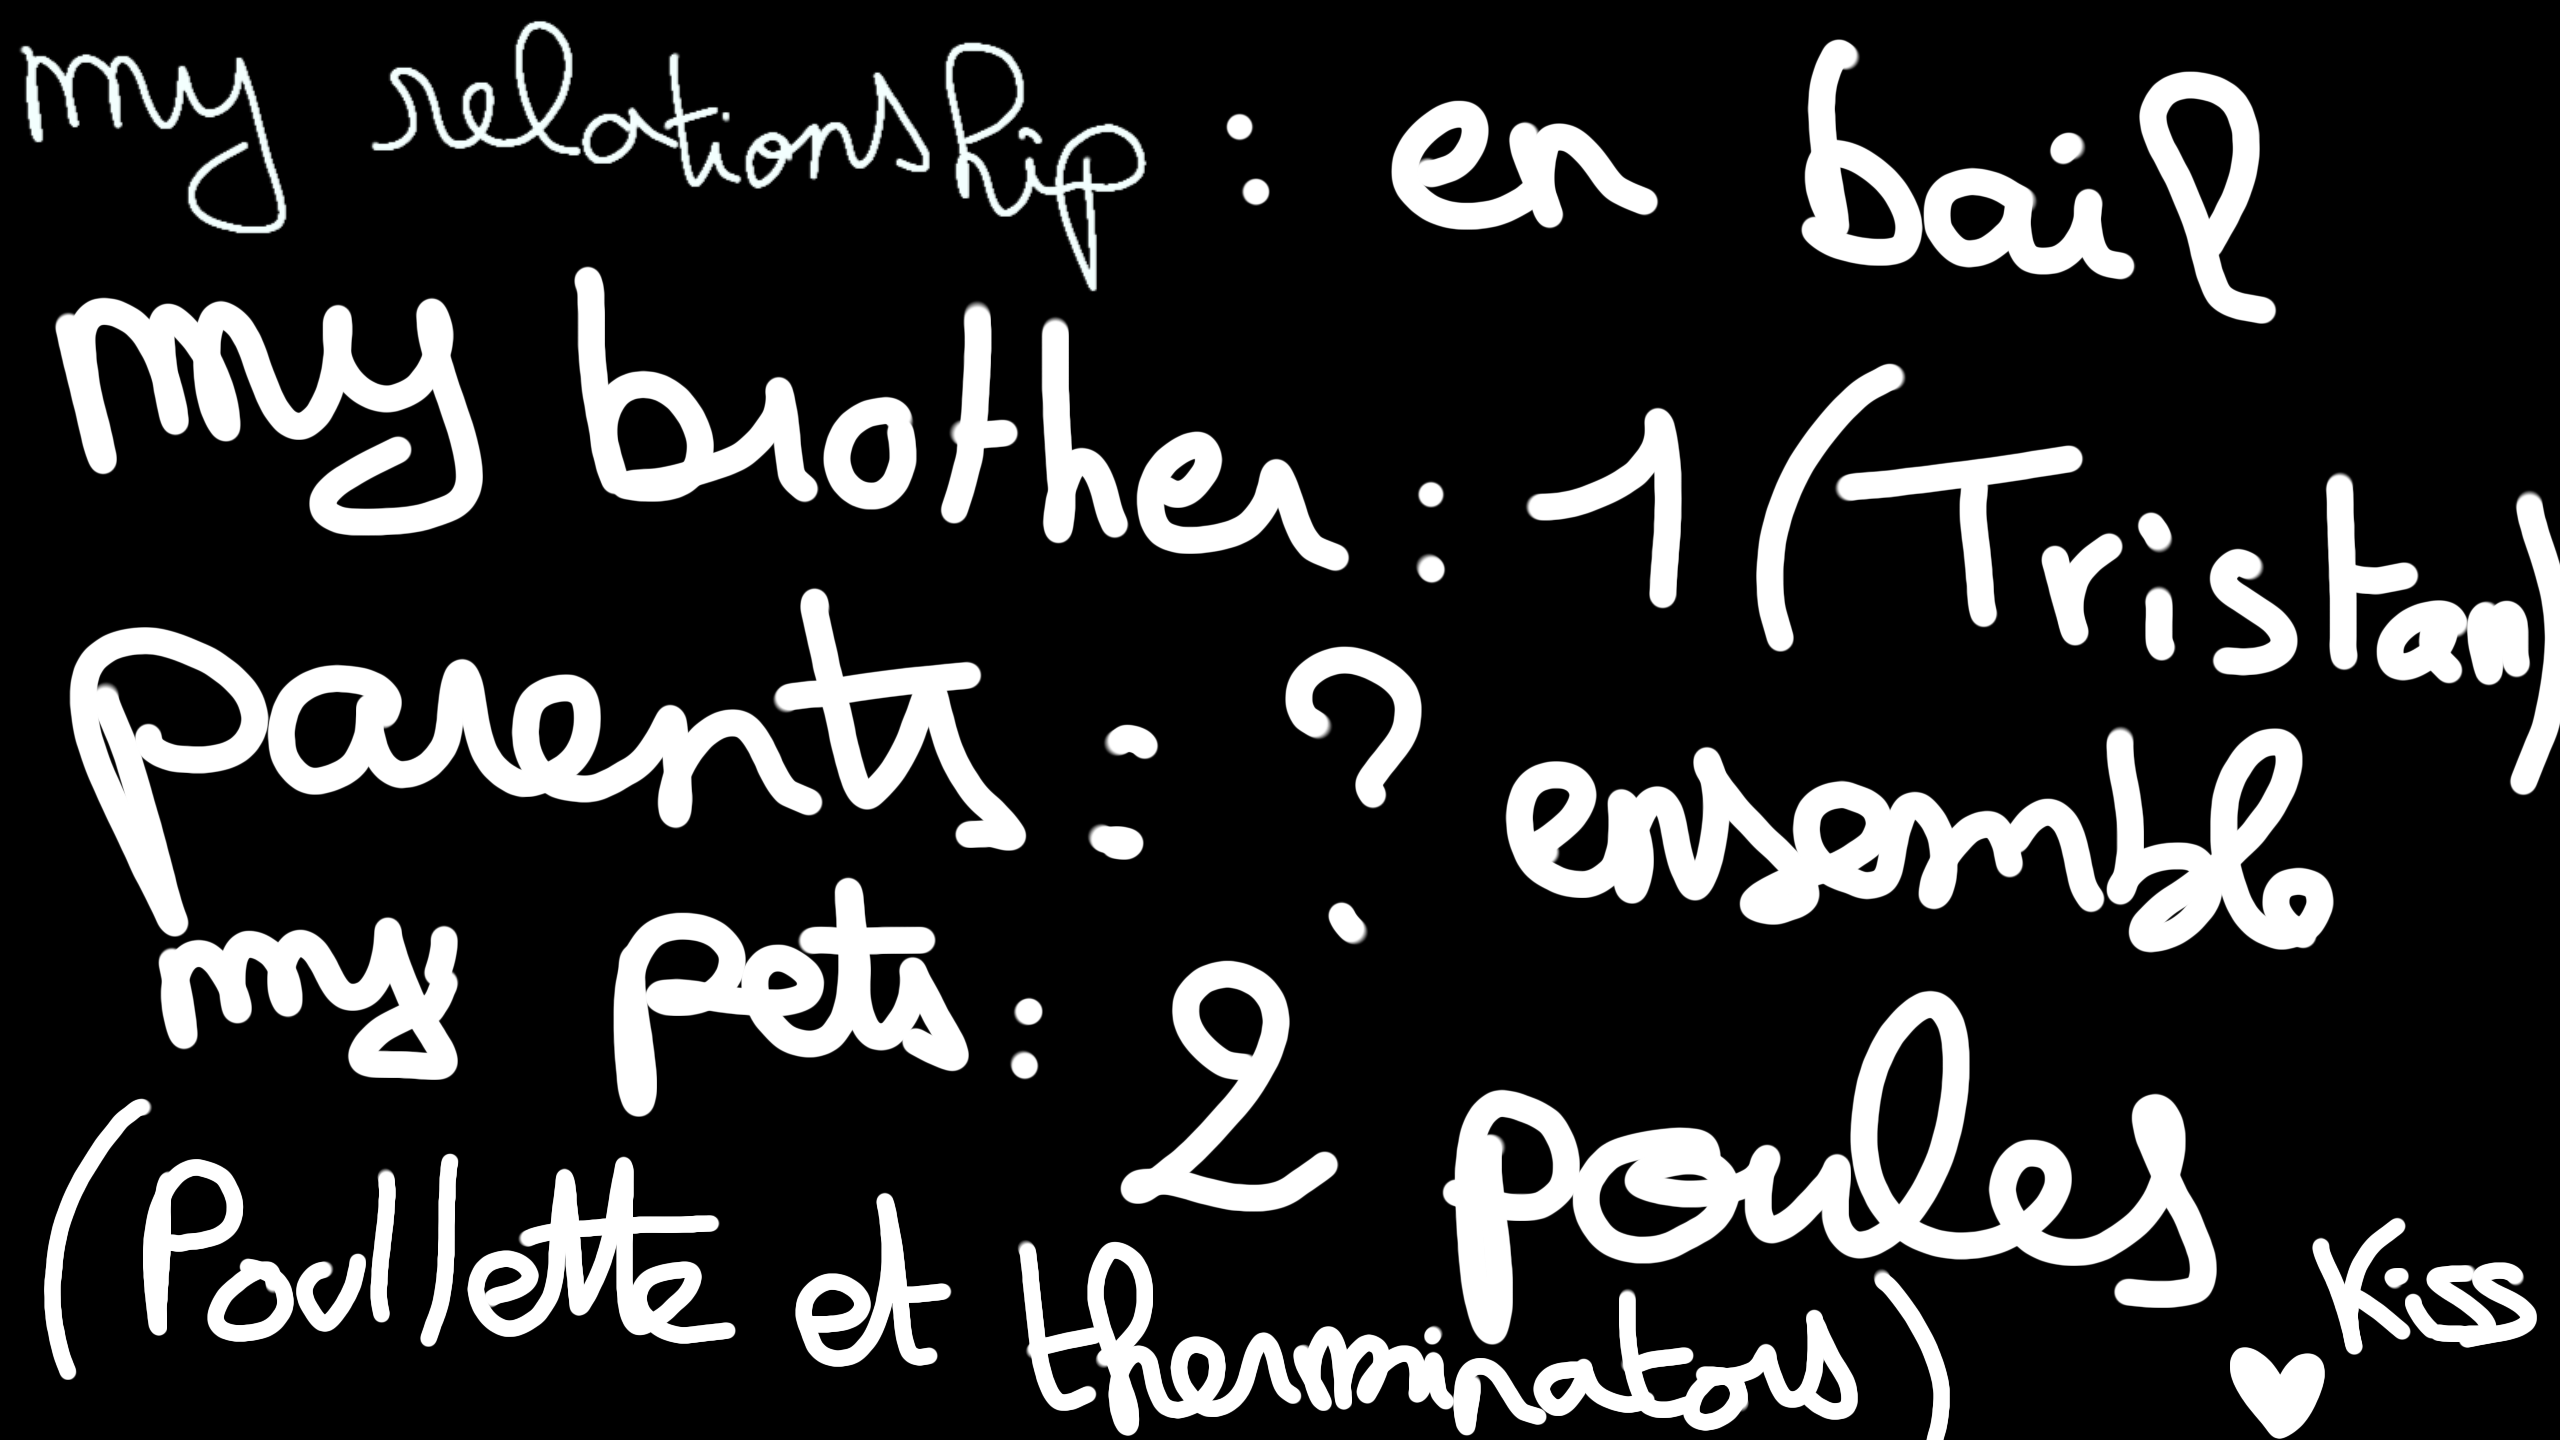 my relationship : en bail
my brother : 1 (Tristan)
parents : ? ensemble
my pets : 2 poules
(Poullette et therminators) Kiss ♥